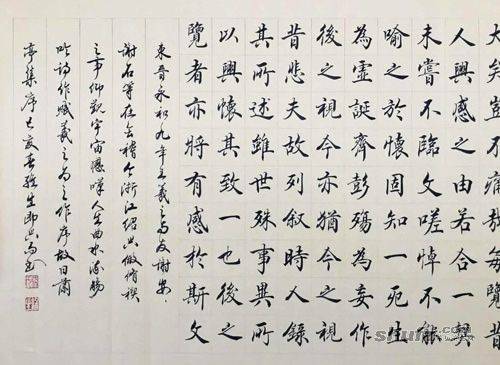 大矣豈不痛哉每覽昔
人興感之由若合一契
未嘗不臨文嗟悼不能
喻之於懷固知一死生
為虛誕齊彭殤為妄作
後之視今亦猶今之視
昔悲夫故列敘時人錄
其所述雖世殊事異所
以興懷其致一也後之
覽者亦將有感於斯文
東晉永和九年王羲之与友謝安、
謝石等在会稽今浙江紹興做脩禊
之事仰觀宇宙慨嘆人生曲水流觴
吟詩作賦羲之為之作序故曰蘭
亭集序己亥春